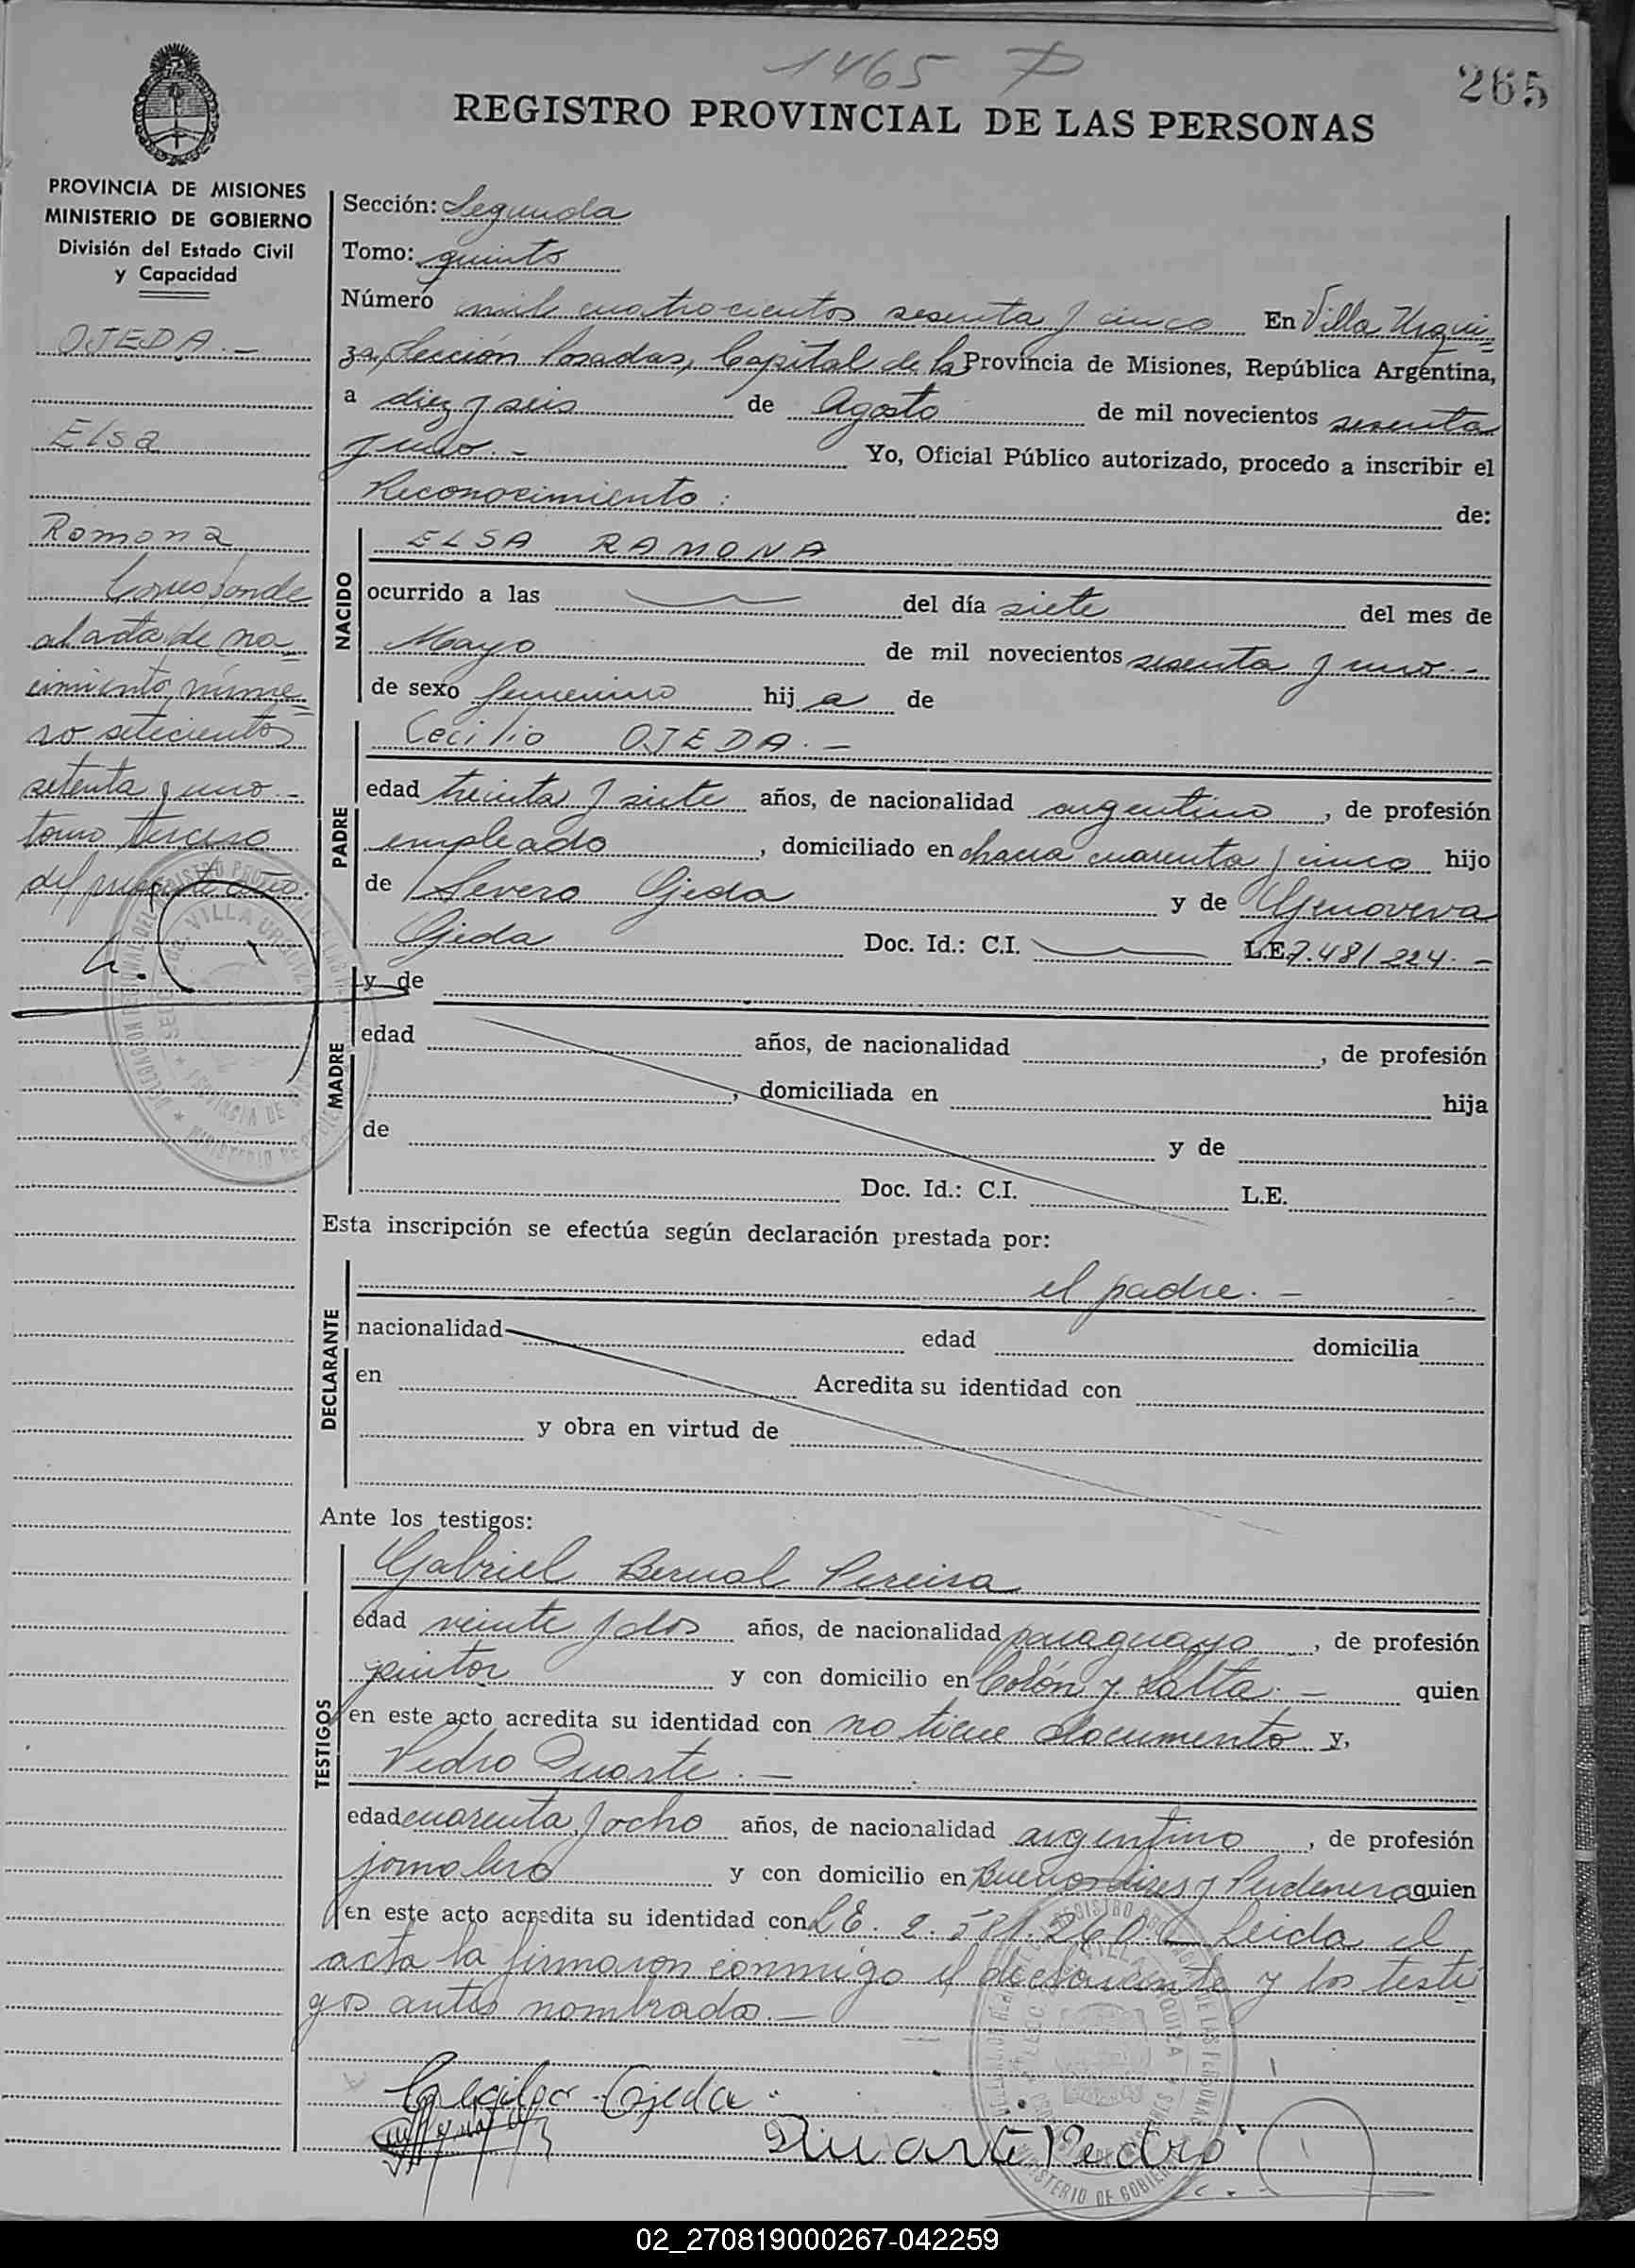 1465
265
REGISTRO PROVINCIAL DE LAS PERSONAS
PROVINCIA DE MISIONES
MINISTERIO DE GOBIERNO
División del Estado Civil
y Capacidad
OJEDA.-
Elsa
Romona
Corresponde
al acta de na=
cimiento núme=
ro setecientos
setenta y uno.-
tomo tercero
del presente año.
Sección: Segunda
Tomo: quinto
Número mil cuatrocientos sesenta y cinco En Villa Urqui=
za, Sección Posadas, Capital de la Provincia de Misiones, República Argentina,
a diez y seis de Agosto de mil novecientos sesenta
y uno.- Yo, Oficial Público autorizado, procedo a inscribir el
Reconocimiento: de:
NACIDO
ELSA RAMONA
ocurrido a las del día siete del mes de
Mayo de mil novecientos sesenta y uno.-
de sexo femenino hij a de
PADRE
Cecilio OJEDA.-
edad treinta y siete años, de nacionalidad argentino, de profesión
empleado, domiciliado en chacra cuarenta y cinco hijo
de Severo Ojeda y de Genoveva
Ojeda Doc. Id.: C.I. L.E. 7.481224.-
MADRE
y de
edad años, de nacionalidad , de profesión
, domiciliada en hija
de y de
Doc. Id.: C.I. L.E.
Esta inscripción se efectúa según declaración prestada por:
DECLARANTE
el padre.-
nacionalidad edad domicilia
en Acredita su identidad con
y obra en virtud de
Ante los testigos:
TESTIGOS
Gabriel Bernal Pereira
edad veinte y dos años, de nacionalidad paraguaya, de profesión
pintor y con domicilio en Colón y Salta.- quien
en este acto acredita su identidad con no tiene documento y,
Pedro Duarte.-
edad cuarenta y ocho años, de nacionalidad argentino, de profesión
jornalero y con domicilio en Buenos Aires y Perdenera quien
en este acto acredita su identidad con L.E. 2.581.260. Leida el
acta la firmaron conmigo el declarante y los testi
gos antes nombrados.-
Cecilio Ojeda
Duarte Pedro
02_270819000267-042259